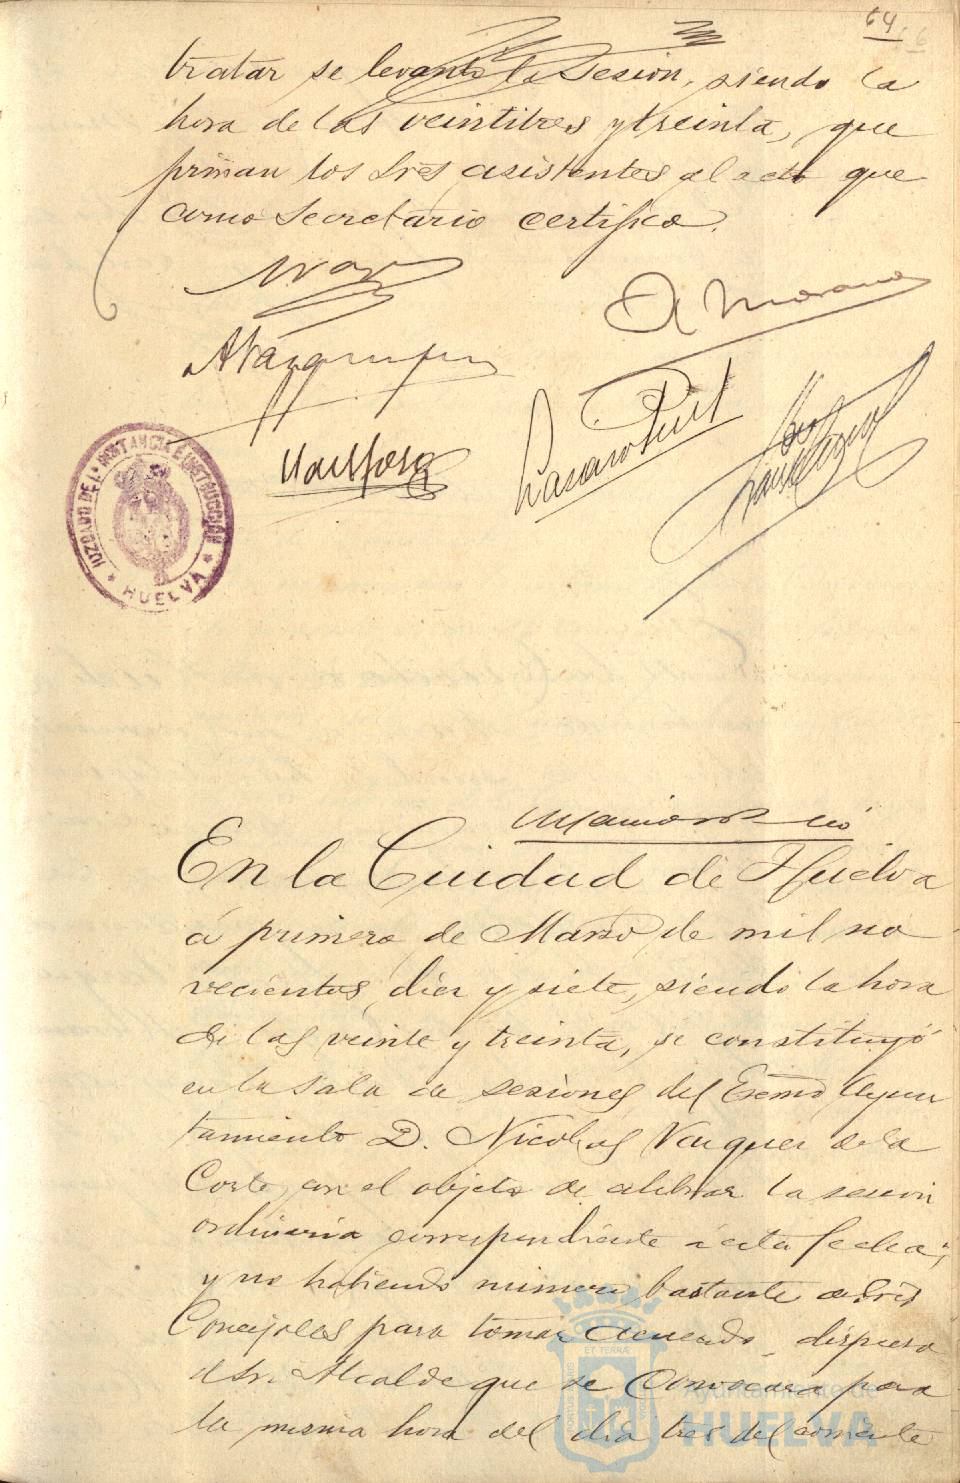 64
tratar se levantó la Sesion, siendo la
hora de las veintitres y treinta, que
firman los Sres asistentes al acto que
como Secretario certifico.
A Moreno
JUZGADO DE 1ª INSTANCIA E INSTRUCCIÓN
* HUELVA *
En la Ciudad de Huelva
á primero de Marzo de mil no
vecientos diez y siete, siendo la hora
de las veinte y treinta, se constituyó
en la Sala de sesiones del Excmo Ayun
tamiento D. Nicolas Vazquez de la
Corte, con el objeto de celebrar la sesion
ordinaria correspondiente á esta fecha;
y no habiendo número bastante de Sres
Concejales para tomar acuerdo, dispuso
el Sr. Alcalde que se convocara para
la misma hora del dia tres del corriente
Ayuntamiento de
HUELVA